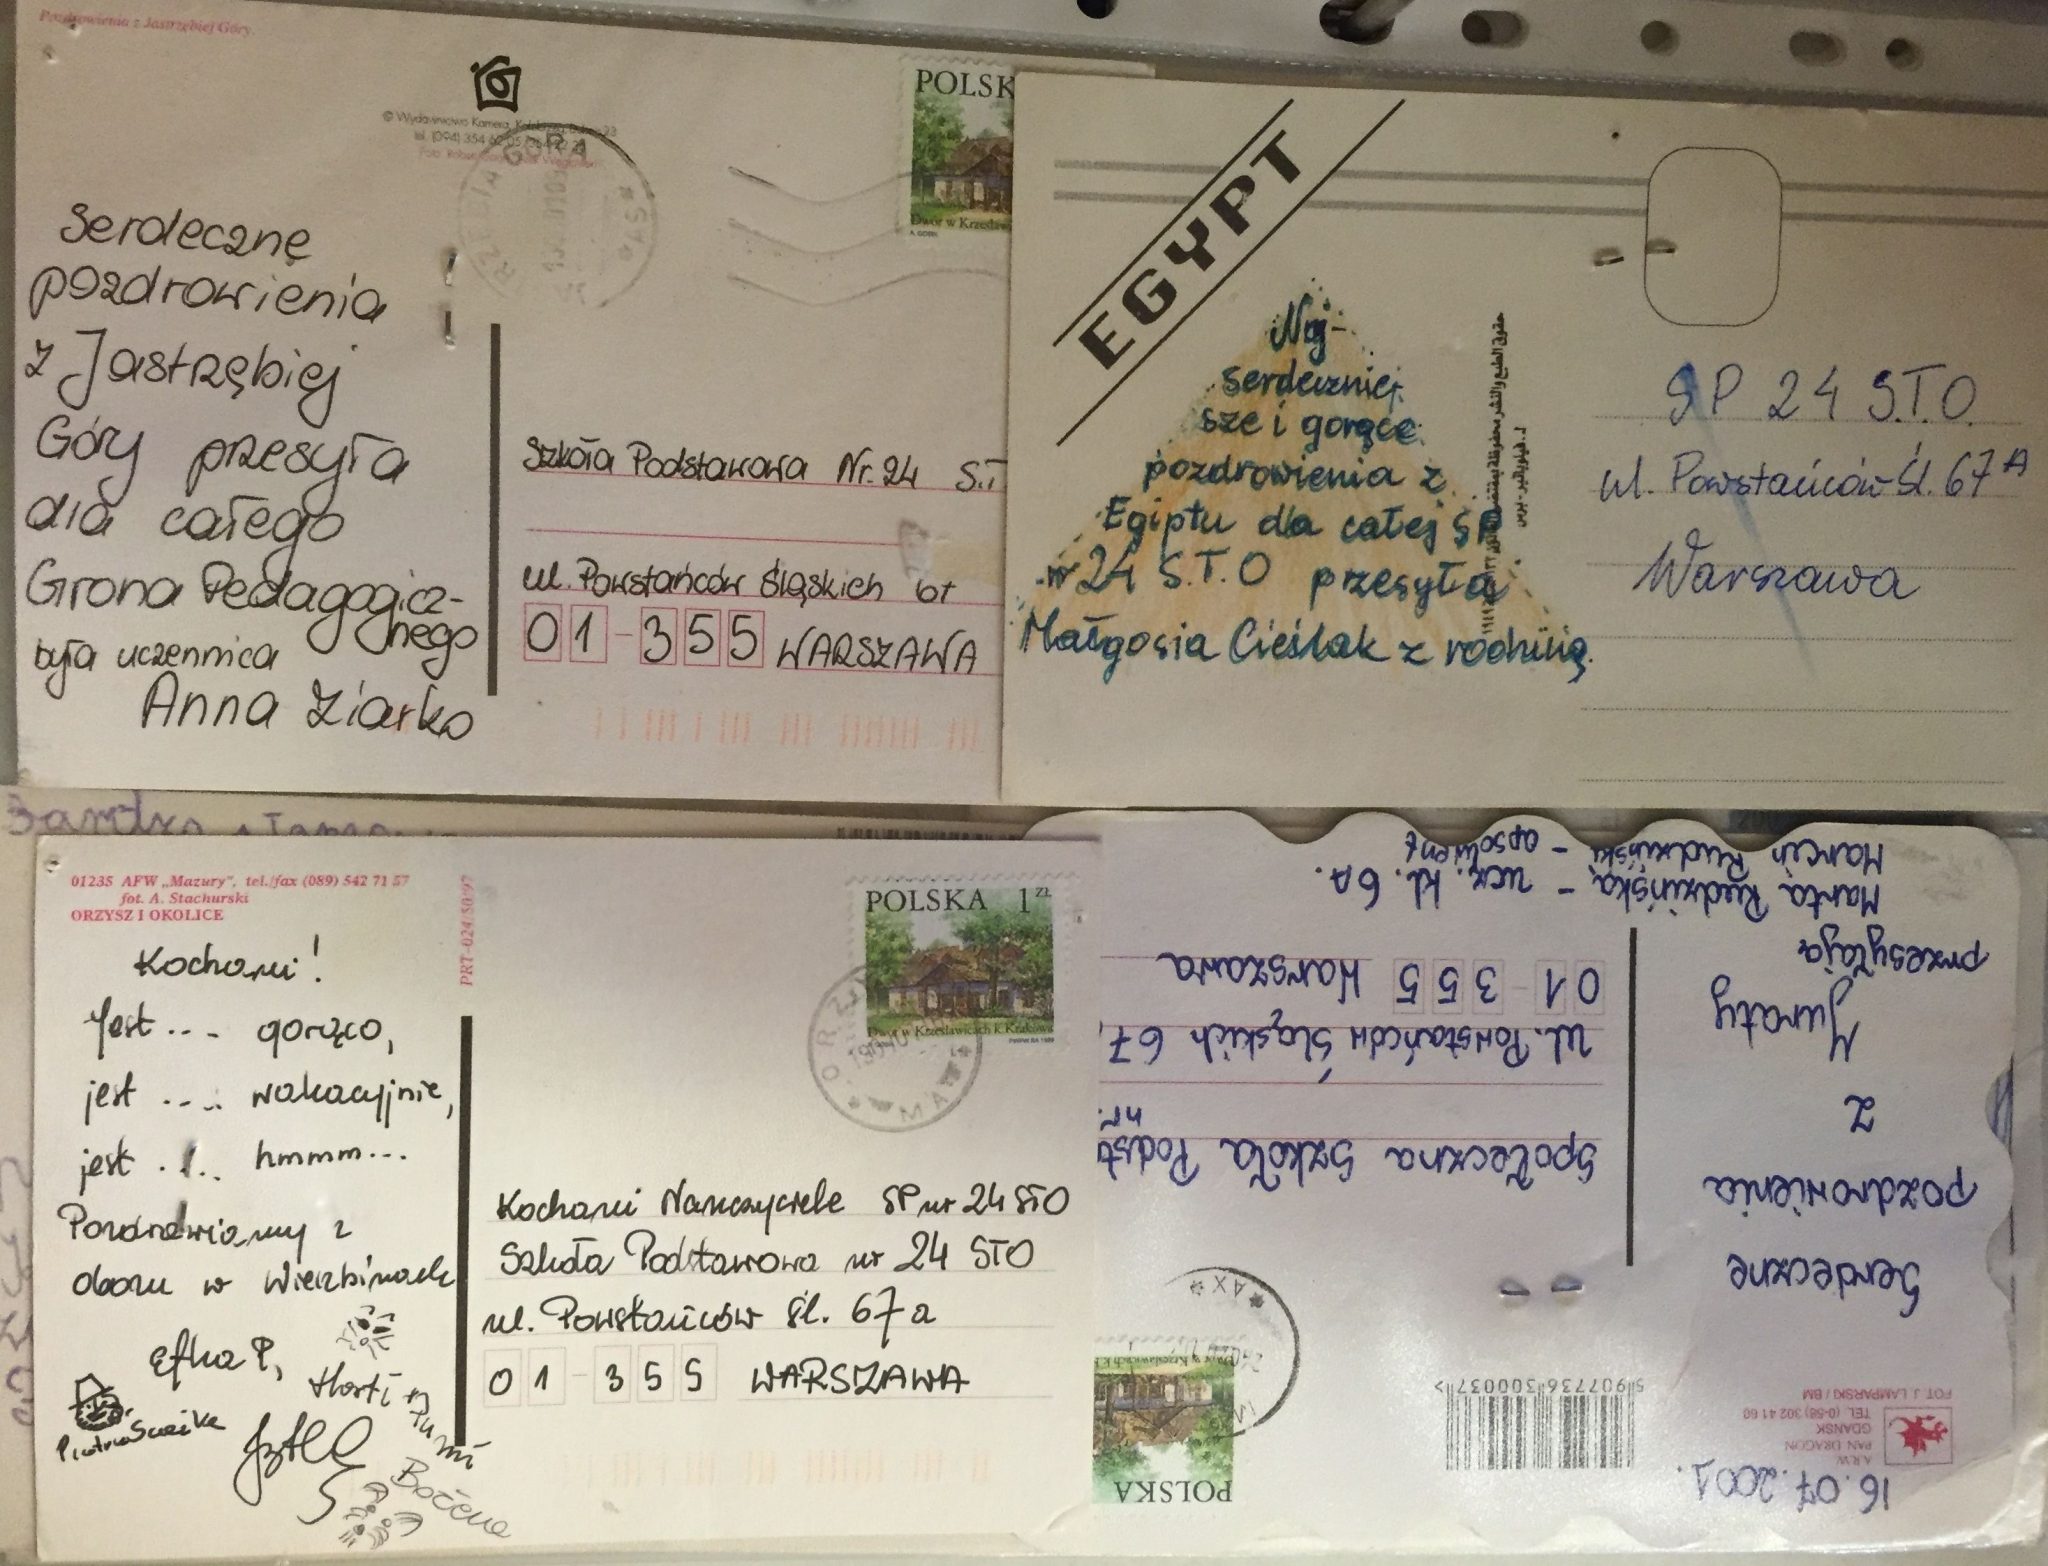 Pozdrowienia z Jastrzębiej Góry
© Wydawnictwo Kamera,
tel. (094) 354
GÓRA
POLSK
Dwór w Krzesław
Serdeczne
pozdrowienia
z Jastrzębiej
Góry przesyła
dla całego
Grona Pedagogicz-
nego
była uczennica
Anna Ziarko
Szkoła Podstawowa Nr. 24 S.T
ul. Powstańców Śląskich 67
01-355 WARSZAWA
EGYPT
Naj-
serdeczniej
sze i gorące
pozdrowienia z
Egiptu dla całej SP
nr 24 S.T.O przesyła
Małgosia Cieślak z rodziną.
SP 24 S.T.O.
ul. Powstańców Śl. 67A
Warszawa
01235 AFW „Mazury", tel./fax (089) 542 71 57
fot. A. Stachurski
ORZYSZ I OKOLICE
PRT-024/50/97
POLSKA 1 ZŁ
Dwór w Krzesławicach k. Krakowa
Kochani!
Jest ... gorąco,
jest .... wakacyjnie,
jest .... hmmm...
Pozdrawiamy z
obozu w Wierzbinach
Efka P,
Bożena
Kochani Nauczyciele SP nr 24 STO
Szkoła Podstawowa nr 24 STO
ul. Powstańców Śl. 67a
01-355 WARSZAWA
16.07.2001.
A.R.W.
PAN DRAGON
GDAŃSK
TEL. (0-58) 302 41 60
FOT. J. LAMPARSKI / BM
5 907736 300037 >
POLSKA
Serdeczne
pozdrowienia
z
Juraty
przesyłają
Marta Rudzińska - ucz. kl. 6A.
Marcin Rudziński - absolwent
Społeczna Szkoła Podst
nr.
ul. Powstańców Śląskich 67,
01-355 Warszawa